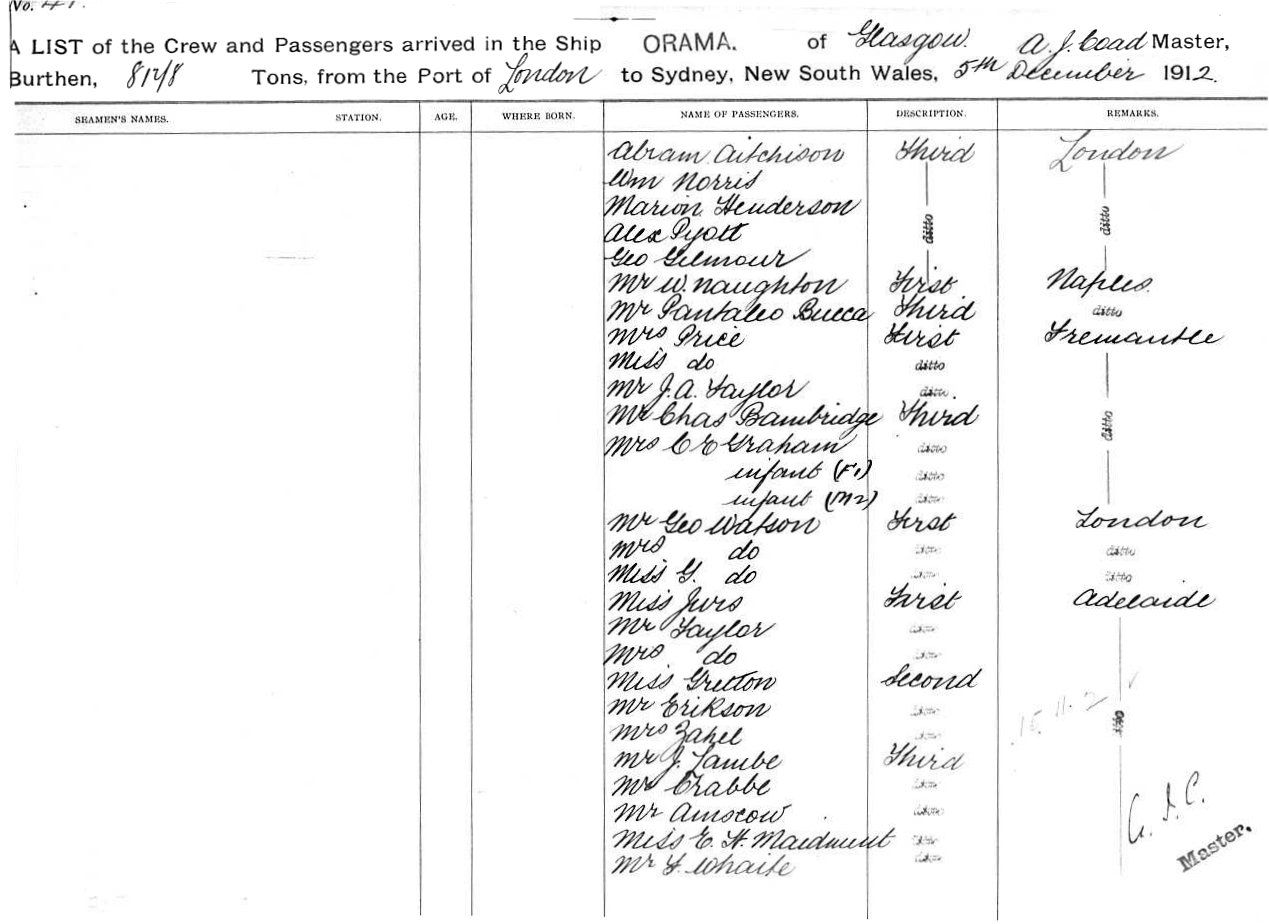 No. 41.
A LIST of the Crew and Passengers arrived in the Ship ORAMA. of Glasgow. A. J. Coad Master,
Burthen, 8128 Tons, from the Port of London to Sydney, New South Wales, 5th December 1912.
SEAMEN'S NAMES. STATION. AGE. WHERE BORN. NAME OF PASSENGERS. DESCRIPTION. REMARKS.
Abram Aitchison Third London
Wm Norris
Marion Henderson
Alex Pyott ditto ditto
Geo Gilmour
Mr W. Naughton First Naples
Mr Pantaleo Bucca Third ditto
Mrs Price First Fremantle
Miss do ditto
Mr J. A. Taylor ditto
Mr Chas Bambridge Third ditto
Mrs C E Graham ditto
infant (F1) ditto
infant (M2) ditto
Mr Geo Watson First London
Mrs do ditto ditto
Miss G. do ditto ditto
Miss Jurs First Adelaide
Mr Taylor ditto
Mrs do ditto
Miss Gretton Second
Mr Erikson ditto ditto
Mrs Zahel ditto
Mr J. Lambe Third
Mr Crabbe ditto
Mr Amscow ditto
Miss E. H. Maidment ditto
Mr F. Whaite ditto
Master.